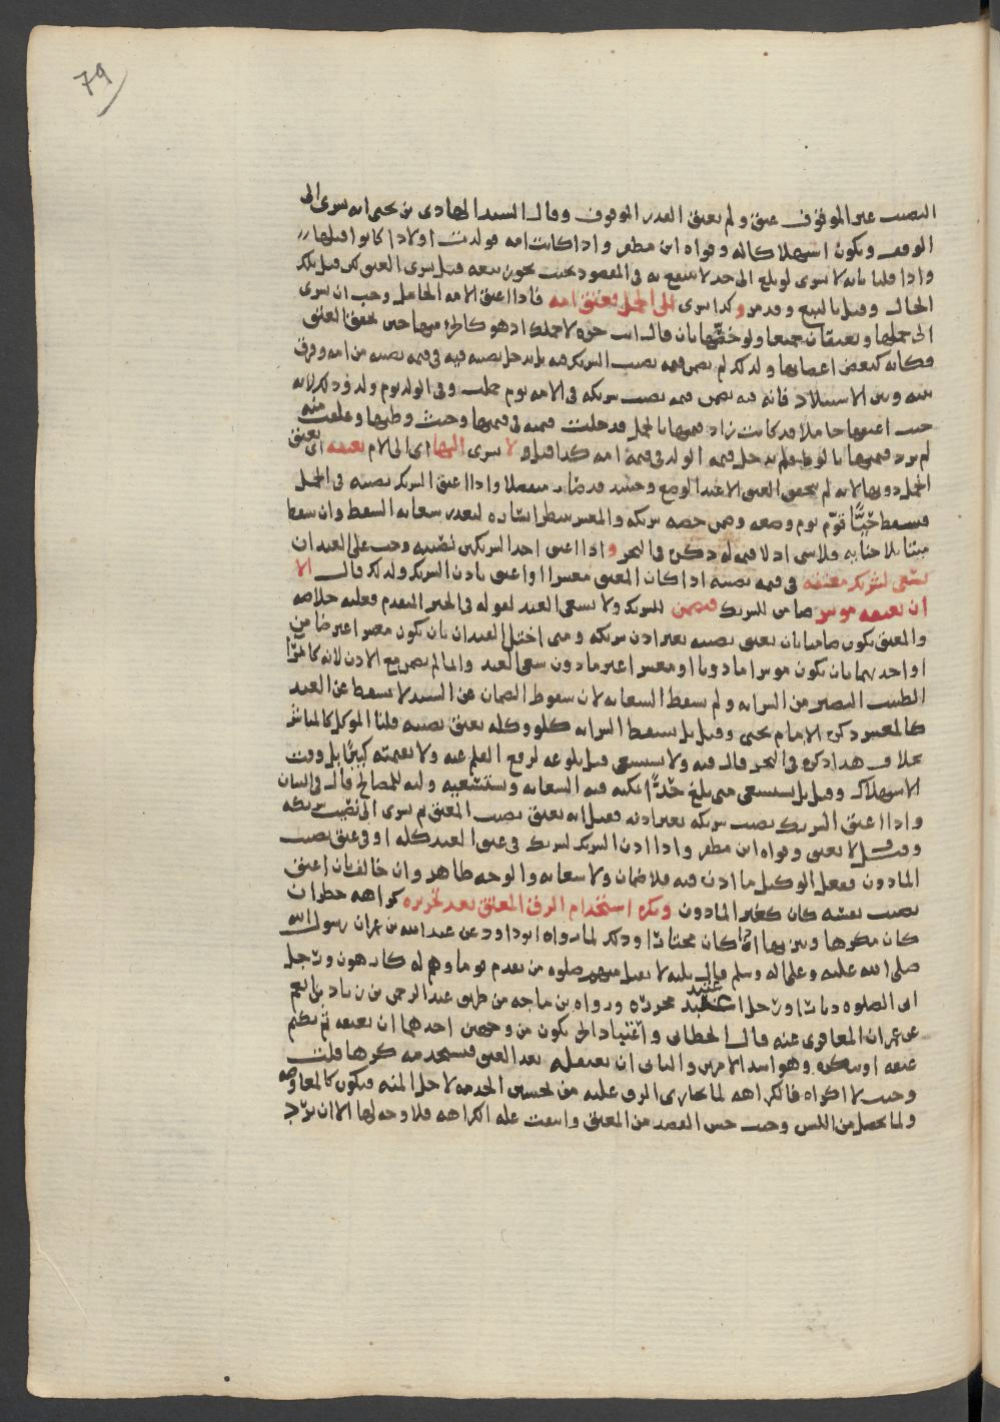 79
النصيب غير الموقوف عتق ولم يعتق القدر الموقوف وقال السيد الهادي بن يحيى انه يسري الى
الوقف ويكون استهلاكا له وقواه ابن مظفر واذا كانت امه فولدت اولادا كانوا قبلها
واذا قلنا بانه لا يسري لو بلغ الى حد لا ينتفع به في المقصود بحيث يجوز بيعه قيل يسري العتق قيل بتلك
الحال وقيل بالبيع وقد مر وكذا يسري الى الحمل فعتق امه فاذا اعتق الامه الحامل وجب ان يسري
الى حملها ويعتقان جميعا ولو خصها بان قال انت حره لا حملك اذ هو كالجزء منها حين يحقق العتق
فكانه كبعض اعضائها ولذلك لم يضمن قيمه نصيب الشريك فيه بل يدخل نصيبه فيه في قيمه نصيبه من امه وفرق
بينه وبين الاستيلاد فانه فيه يضمن قيمه نصيب شريكه في الامه يوم حبلت وفي الولد يوم ولد وذلك لانه
حيث اعتقها حاملا قد كانت زاد قيمتها بالحمل فدخلت قيمته في قيمتها وحيث وطيها وعلقت منه
لم يزد قيمتها بالوطء فلم يدخل قيمه الولد في قيمة امه كذا قيل ولا يسري اليها اي الى الام بعتقه اي بعتق
الحمل دونها لانه لم يتحقق العتق الا عند الوضع وحينئذ قد صار منفصلا واذا اعتق الشريك نصيبه في الحمل
فسقط حيًّا قوّم يوم وضعه وضمن حصه شريكه والمعسر ينظر ايساره لتعذر سعايه السقط وان سقط
ميتا بلا جنايه فلا شي اذ لا قيمه له ذكره في البحر واذا اعتق احد الشريكين نصيبه وجب على العبد ان
يسعى لشريك معتقه في قيمه نصيبه اذا كان المعتق معسرا او اعتق باذن الشريك ولذلك قال الا
ان يعتقه موسر ضامن للشريك فيضمن للشريك ولا يسعى العبد لقوله في الخبر المتقدم فعليه خلاصه
والمعتق يكون ضامنا بان يعتق نصيبه بغير اذن شريكه ومتى اختل القيدان بان يكون معسر اغير ضامن
او احدهما بان يكون موسرا ماذونا او معسرا غير ماذون سعى العبد وانما لم يضمن مع الاذن لانه كابرأ
الطبيب البصير من السرايه ولم يسقط السعايه لان سقوط الضمان عن السيد لا يسقط عن العبد
كالمعسر ذكره الامام يحيى وقيل بل يسقط السرايه كلو وكله بعتق نصيبه قلنا الموكل كالمباشر
بخلاف هذا ذكره في البحر قال فيه ولا يستسعى قبل بلوغه لرفع القلم عنه ولا بقيمته كبيرًا بل وقت
الاستهلاك وقيل بل يستسعى متى بلغ حدًّا يمكنه فيه السعايه ويستسعيه وليه للمصالح قال في البيان
واذا اعتق الشريك نصيب شريكه بغير اذنه فقيل انه يعتق نصيب المعتق ثم يسري الى نصيب شريكه
وقيل لا يعتق وقواه ابن مظفر واذا اذن الشريك لشريكه في عتق العبد كله او في عتق نصيب
الماذون ففعل الوكيل ما اذن فيه فلا ضمان ولا سعايه والوجه ظاهر وان خالف بان اعتق
نصيب نفسه كان كغير الماذون ويكره استخدام الرق المعتق بعد تحريره كراهه حظر ان
كان مكرها وتنزيها اذا كان مختارا وذلك لما رواه ابو داود عن عبد الله بن عمران رسول الله
صلى الله عليه وعلى اله وسلم قال ثلثه لا يقبل منهم صلوه من تقدم قوما وهم له كارهون ورجل
اتى الصلوه دبارا ورجل اعتبد محرره ورواه بن ماجه من طريق عبد الرحمن بن زياد بن انعم
عن عمران المعافري عنه قال الخطابي واعتباد الحر يكون من وجهين احدهما ان يعتقه ثم يكتم
عتقه او ينكره وهو اشد الامرين والثاني ان يعتقله بعد العتق فيستخدمه كرها قلت
وحيث لا اكراه فالكراهه لما يجازي الرق عليه من تحسين الخدمه لاجل المنه فيكون كالمعاوضه
ولما يحصل من اللبس وحيث حسن القصد من المعتق وانتفت عله الكراهه فلا وجه لها الا ان يرد